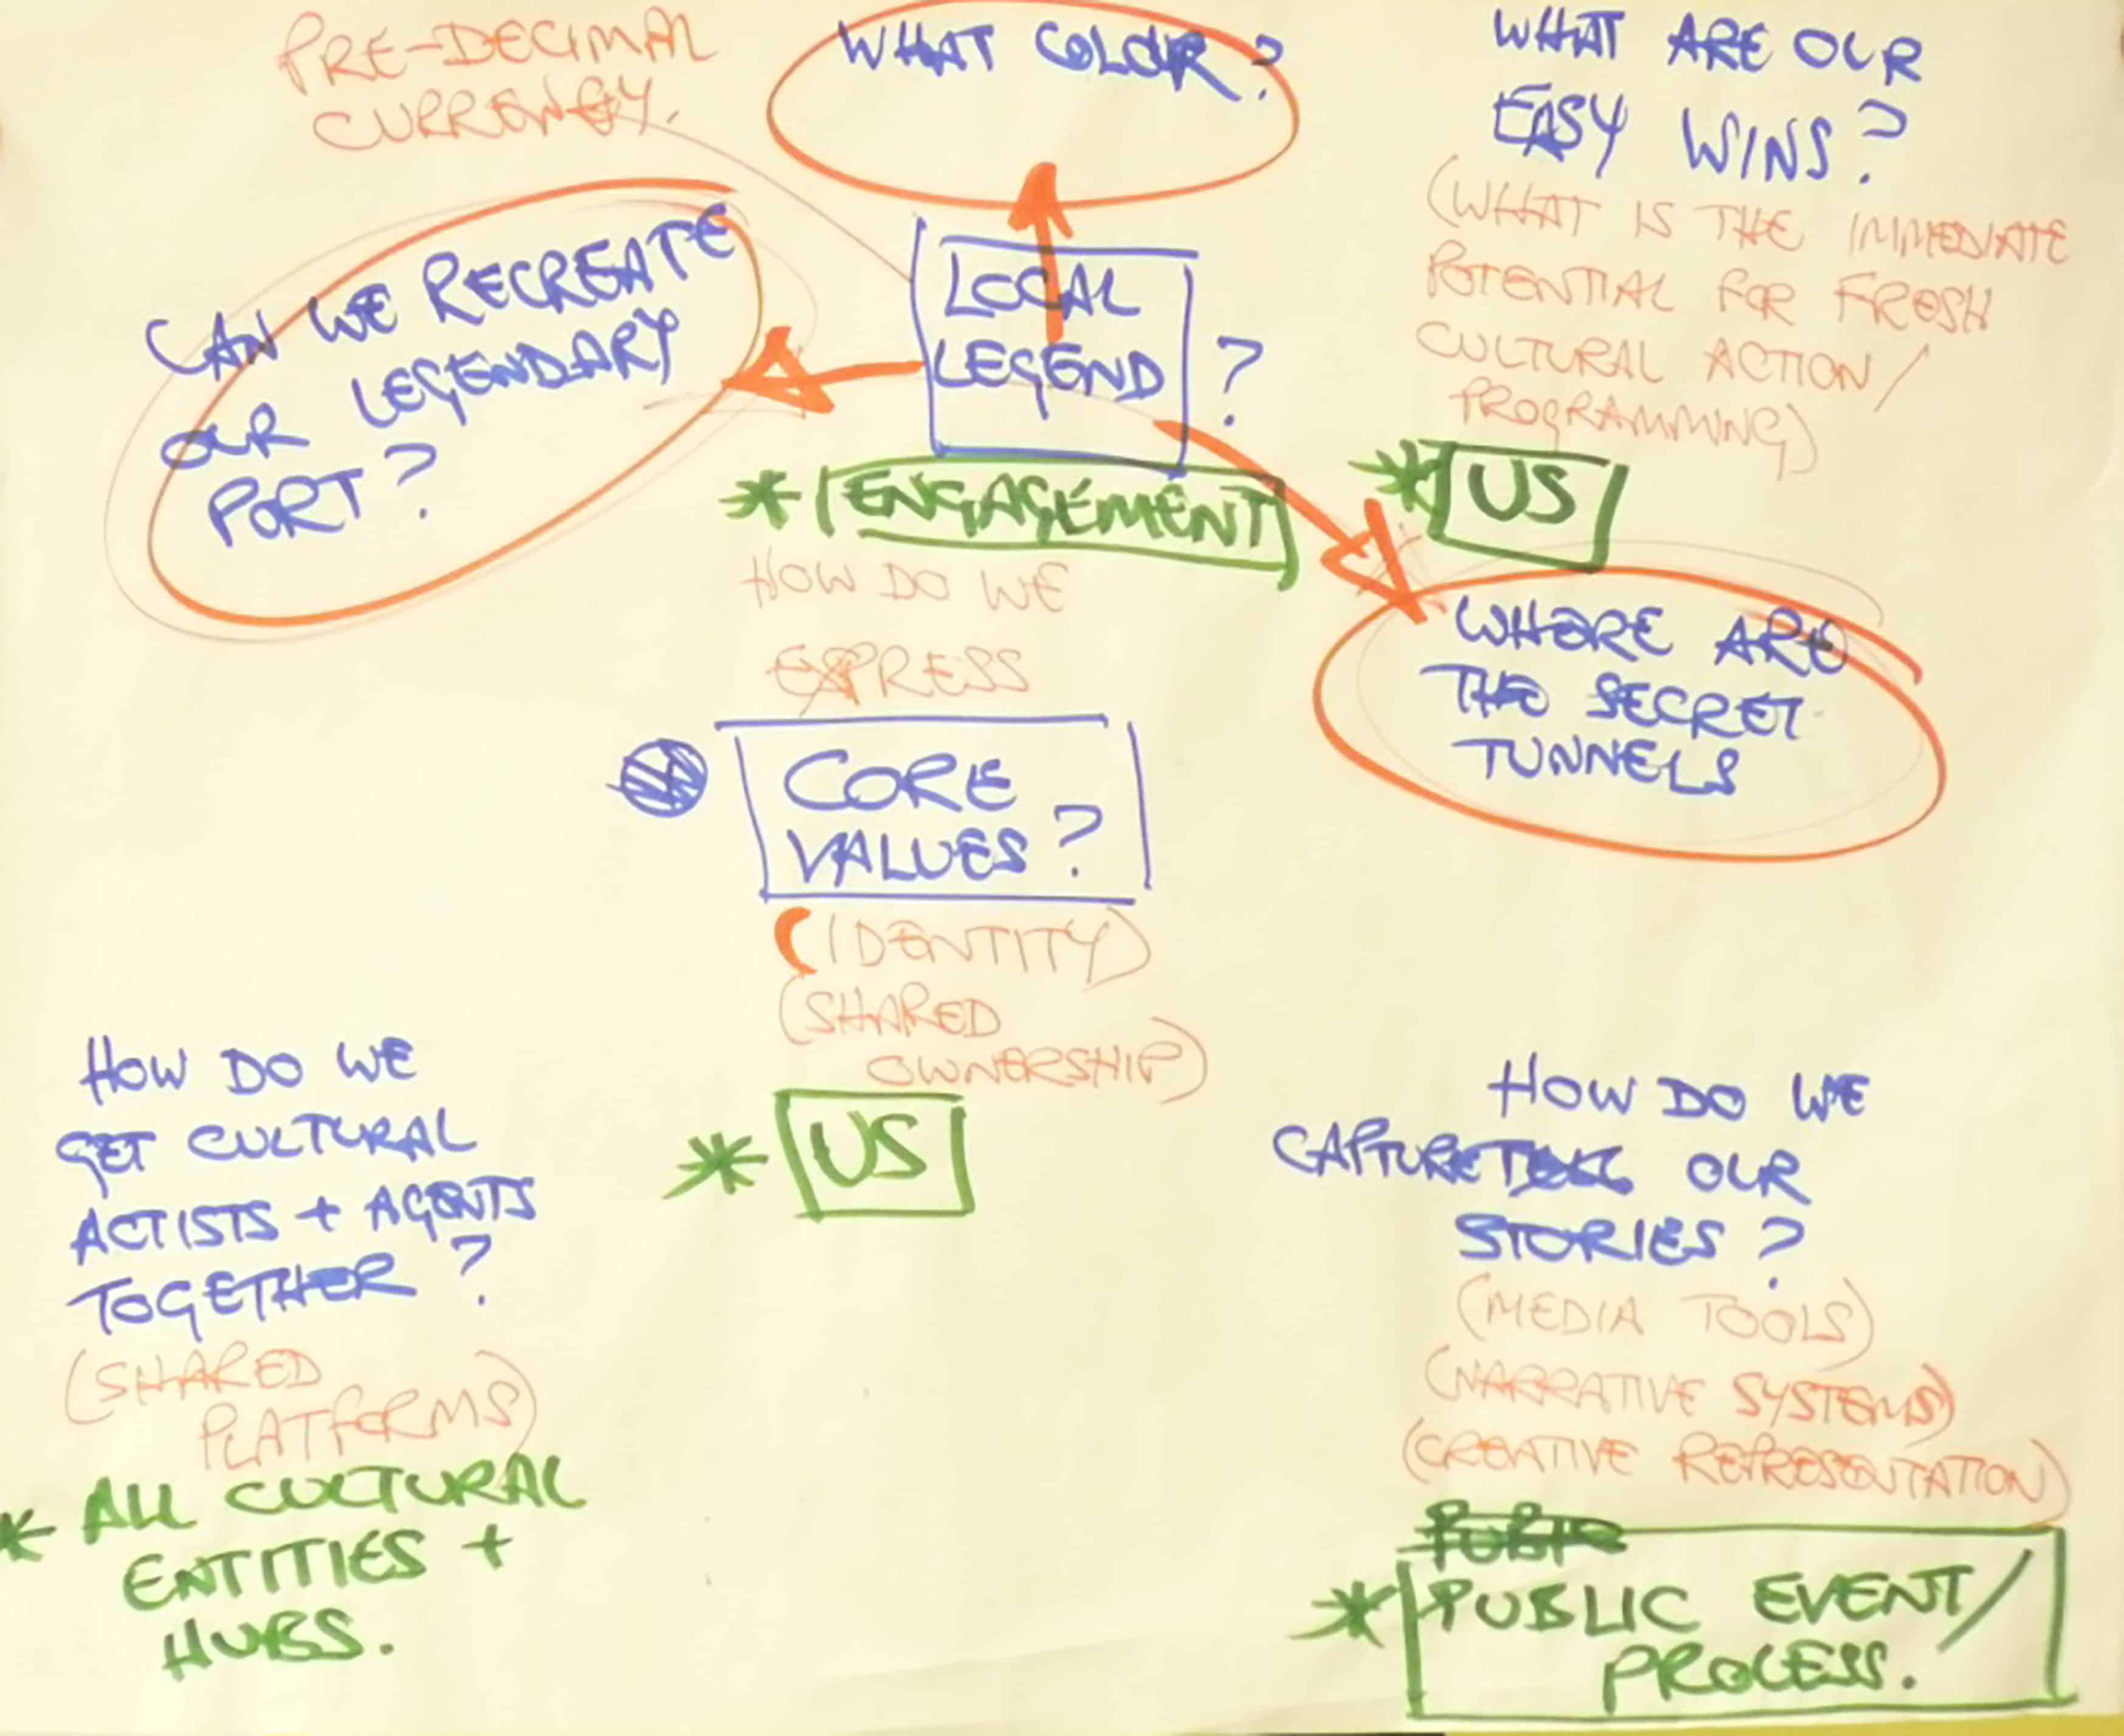 PRE-DECIMAL
CURRENCY.
WHAT COLOUR?
WHAT ARE OUR
EASY WINS?
(WHAT IS THE IMMEDIATE
POTENTIAL FOR FRESH
CULTURAL ACTION/
PROGRAMMING)
* US
CAN WE RECREATE
OUR LEGENDARY
PORT?
LOCAL
LEGEND ?
* ENGAGEMENT
WHERE ARE
THE SECRET
TUNNELS
HOW DO WE
EXPRESS
CORE
VALUES?
(IDENTITY)
(SHARED
OWNERSHIP)
* US
HOW DO WE
GET CULTURAL
ACTISTS + AGENTS
TOGETHER?
(SHARED
PLATFORMS)
* ALL CULTURAL
ENTITIES +
HUBS.
HOW DO WE
CAPTURE OUR
STORIES?
(MEDIA TOOLS)
(NARRATIVE SYSTEMS)
(CREATIVE REPRESENTATION)
* PUBLIC EVENT/
PROCESS.